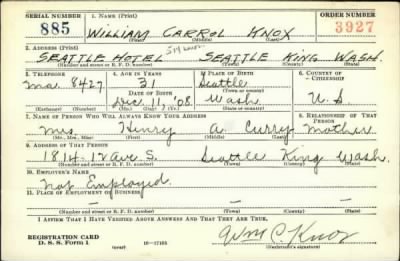 SERIAL NUMBER 1. NAME (Print) ORDER NUMBER
885 WILLIAM CARROL KNOX 3927
(First) (Middle) (Last)
2. ADDRESS (Print)
SEATTLE HOTEL SEATTLE KING WASH.
(Number and street or R. F. D. number) (Town) (County) (State)
3. TELEPHONE 4. AGE IN YEARS 5. PLACE OF BIRTH 6. COUNTRY OF CITIZENSHIP
Ma. 8427 31 Seattle
DATE OF BIRTH (Town or county)
Dec. 11, '08 Wash. U.S
(Exchange) (Number) (Mo.) (Day) (Yr.) (State or country)
7. NAME OF PERSON WHO WILL ALWAYS KNOW YOUR ADDRESS 8. RELATIONSHIP OF THAT PERSON
Mrs. Henry A. Curry Mother
(Mr., Mrs., Miss) (First) (Middle) (Last)
9. ADDRESS OF THAT PERSON
1814-12 Ave S. Seattle King Wash.
(Number and street or R. F. D. number) (Town) (County) (State)
10. EMPLOYER'S NAME
Not Employed.
11. PLACE OF EMPLOYMENT OR BUSINESS
(Number and street or R. F. D. number) (Town) (County) (State)
I AFFIRM THAT I HAVE VERIFIED ABOVE ANSWERS AND THAT THEY ARE TRUE.
REGISTRATION CARD Wm C. Knox
D. S. S. Form 1 (over) 16—17105 (Registrant's signature)